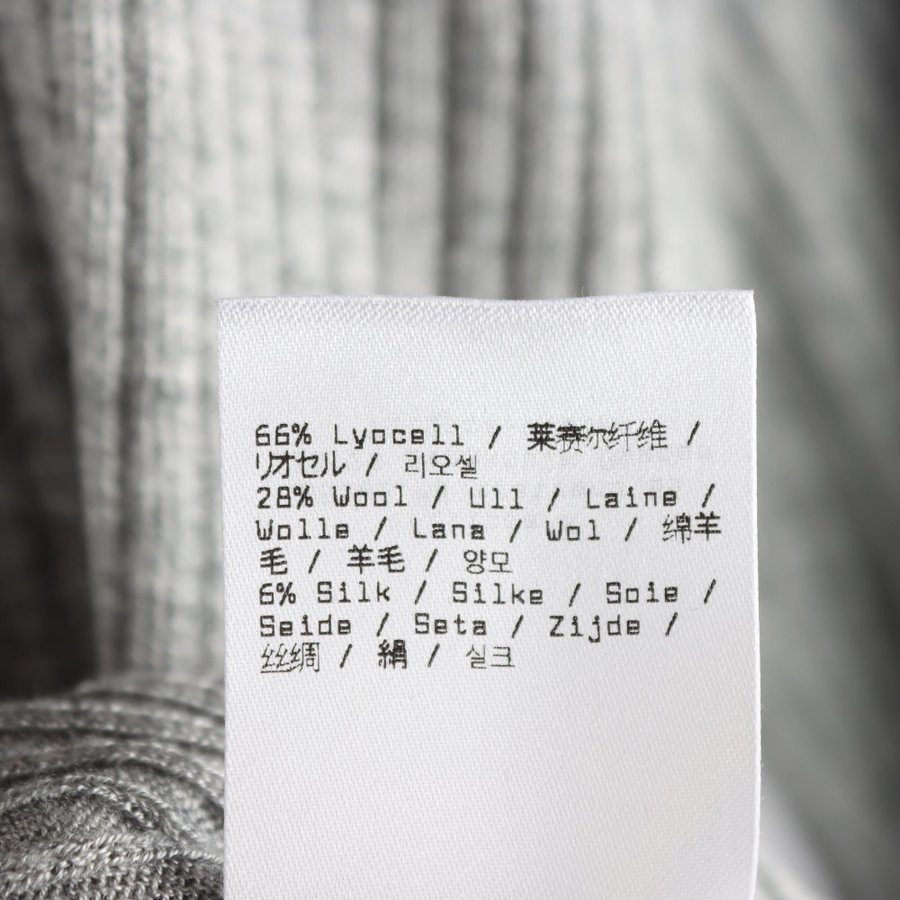 66% Lyocell / 莱赛尔纤维 /
リオセル / 리오셀
28% Wool / Ull / Laine /
Wolle / Lana / Wol / 绵羊
毛 / 羊毛 / 양모
6% Silk / Silke / Soie /
Seide / Seta / Zijde /
丝绸 / 絹 / 실크